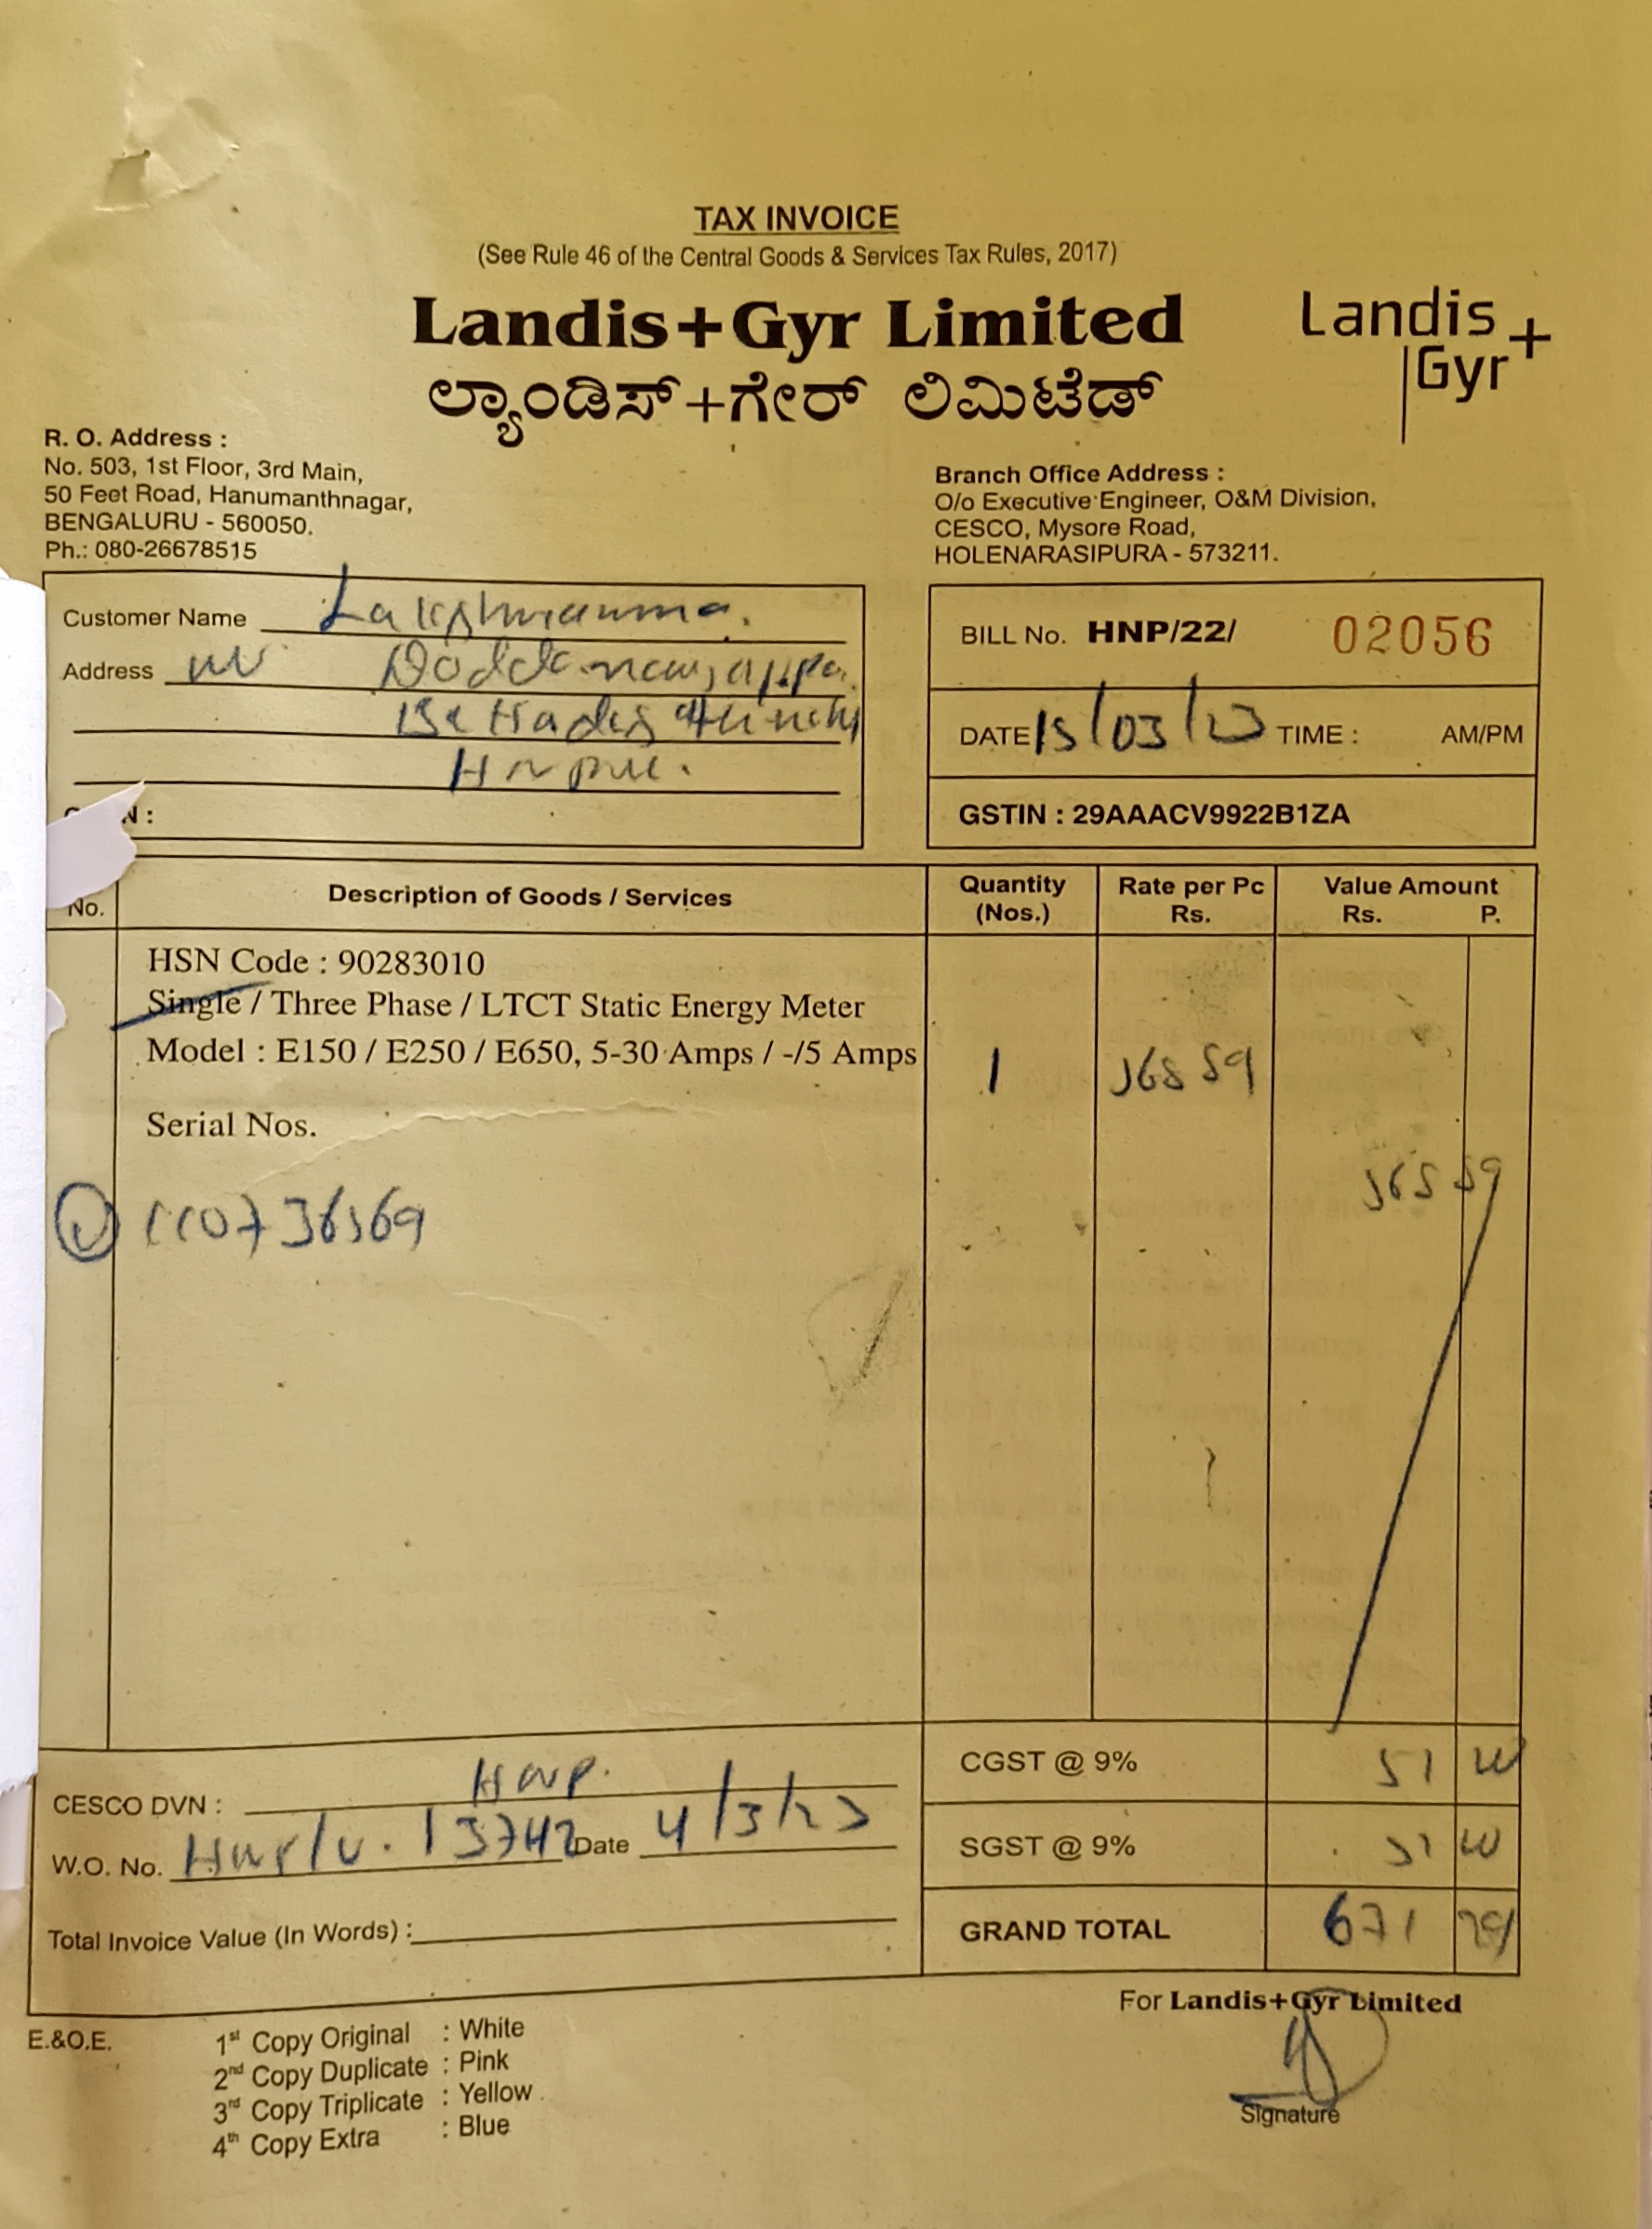 TAX INVOICE
(See Rule 46 of the Central Goods & Services Tax Rules, 2017)
Landis+Gyr Limited
ಲ್ಯಾಂಡಿಸ್+ಗೇರ್ ಲಿಮಿಟೆಡ್
Landis+
Gyr
R. O. Address :
No. 503, 1st Floor, 3rd Main,
50 Feet Road, Hanumanthnagar,
BENGALURU - 560050.
Ph.: 080-26678515
Branch Office Address :
O/o Executive Engineer, O&M Division,
CESCO, Mysore Road,
HOLENARASIPURA - 573211.
Customer Name Lakshmamma.
Address
BILL No. HNP/22/ 02056
DATE 15/03/23 TIME : AM/PM
GSTIN : 29AAACV9922B1ZA
No. Description of Goods / Services Quantity (Nos.) Rate per Pc Rs. Value Amount Rs. P.
HSN Code : 90283010
Single / Three Phase / LTCT Static Energy Meter
Model : E150 / E250 / E650, 5-30 Amps / -/5 Amps 1 568 59
Serial Nos.
CGST @ 9% 51
CESCO DVN : HNP.
W.O. No. Date 4/3/23
SGST @ 9% 51
Total Invoice Value (In Words) :
GRAND TOTAL 671
For Landis+Gyr Limited
Signature
E.&O.E.
1st Copy Original : White
2nd Copy Duplicate : Pink
3rd Copy Triplicate : Yellow
4th Copy Extra : Blue